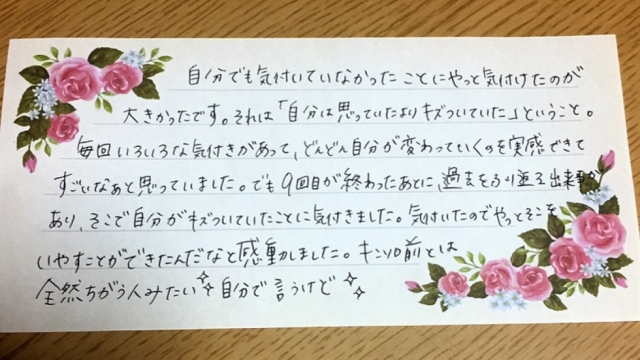 自分でも気付いていなかったことにやっと気付けたのが
大きかったです。それは「自分は思っていたよりキズついていた」ということ。
毎回いろいろな気付きがあって、どんどん自分が変わっていくのを実感できて
すごいなぁと思っていました。でも9回目が終わったあとに、過去をふり返る出来事が
あり、そこで自分がキズついていたことに気付きました。気付いたのでやっとそこを
いやすことができたんだなと感動しました。キンソロ前とは
全然ちがう人みたい✨自分で言うけど✨